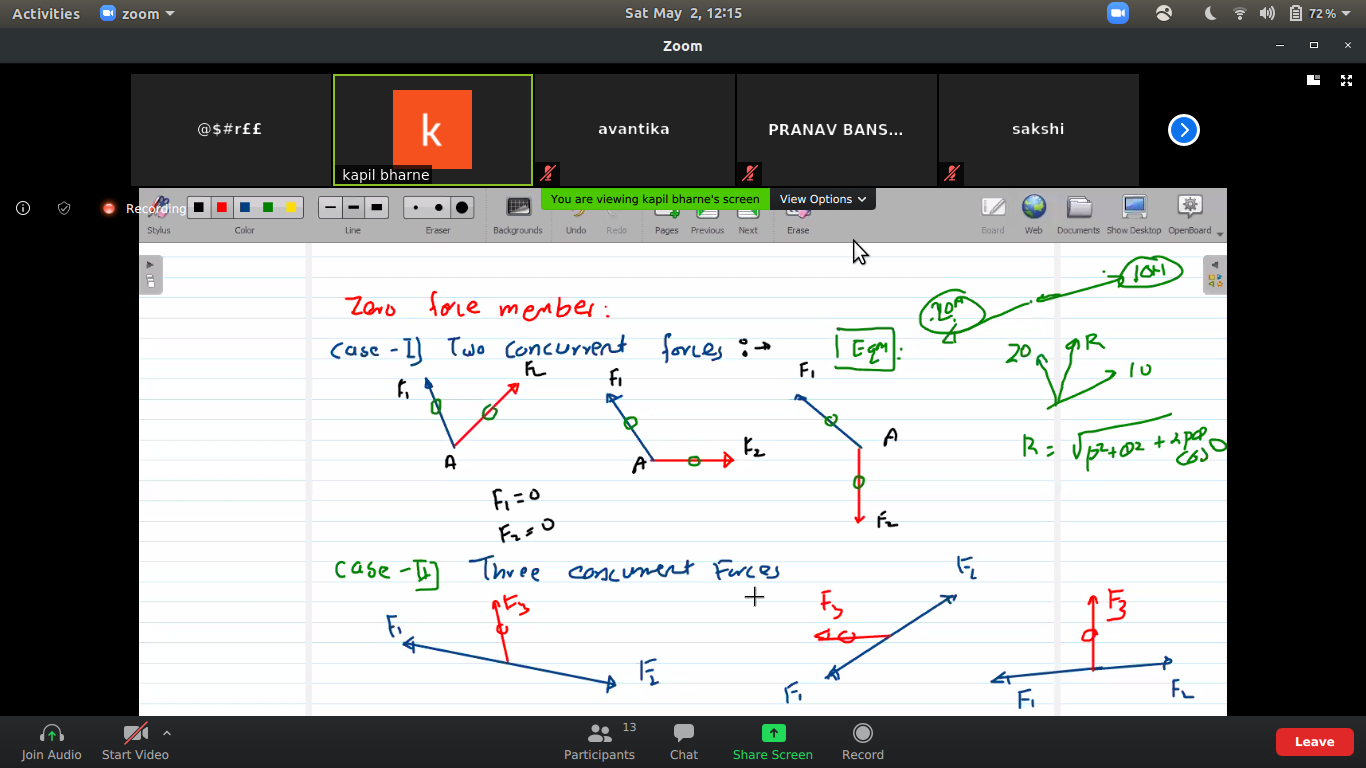 Activities zoom Sat May 2, 12:15 72%
Zoom
@$#r££ k avantika PRANAV BANS... sakshi
kapil bharne
Recording You are viewing kapil bharne's screen View Options
Stylus Color Line Eraser Backgrounds Undo Redo Pages Previous Next Erase Board Web Documents Show Desktop OpenBoard
Zero force member:
Case-I] Two concurrent forces :→ Eqm:
F1 F2 A
F1 F2 A
F1 F2 A
20 R 10
R = √P²+Q²+2PQ cosθ
F1=0
F2=0
Case-II] Three concurrent Forces
F1 F3 F2
F3 F2 F1
F3 F1 F2
Join Audio Start Video Participants 13 Chat Share Screen Record Leave